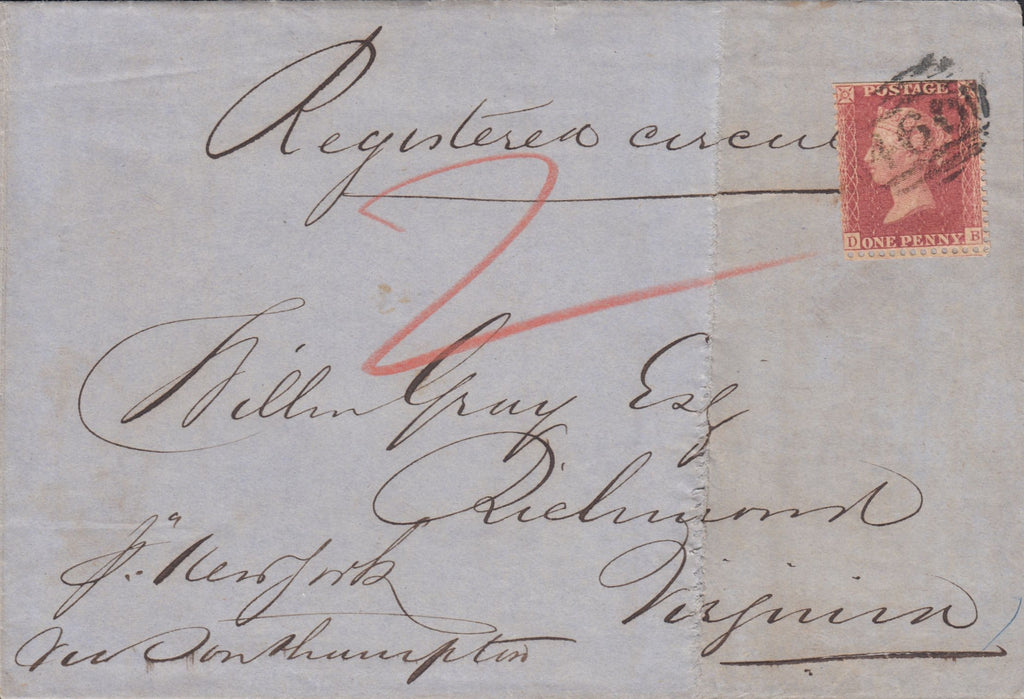 Registered circul
POSTAGE
466
2
D ONE PENNY B
Willm Gray Esq
Richmond
pr. New York
Virginia
via Southampton